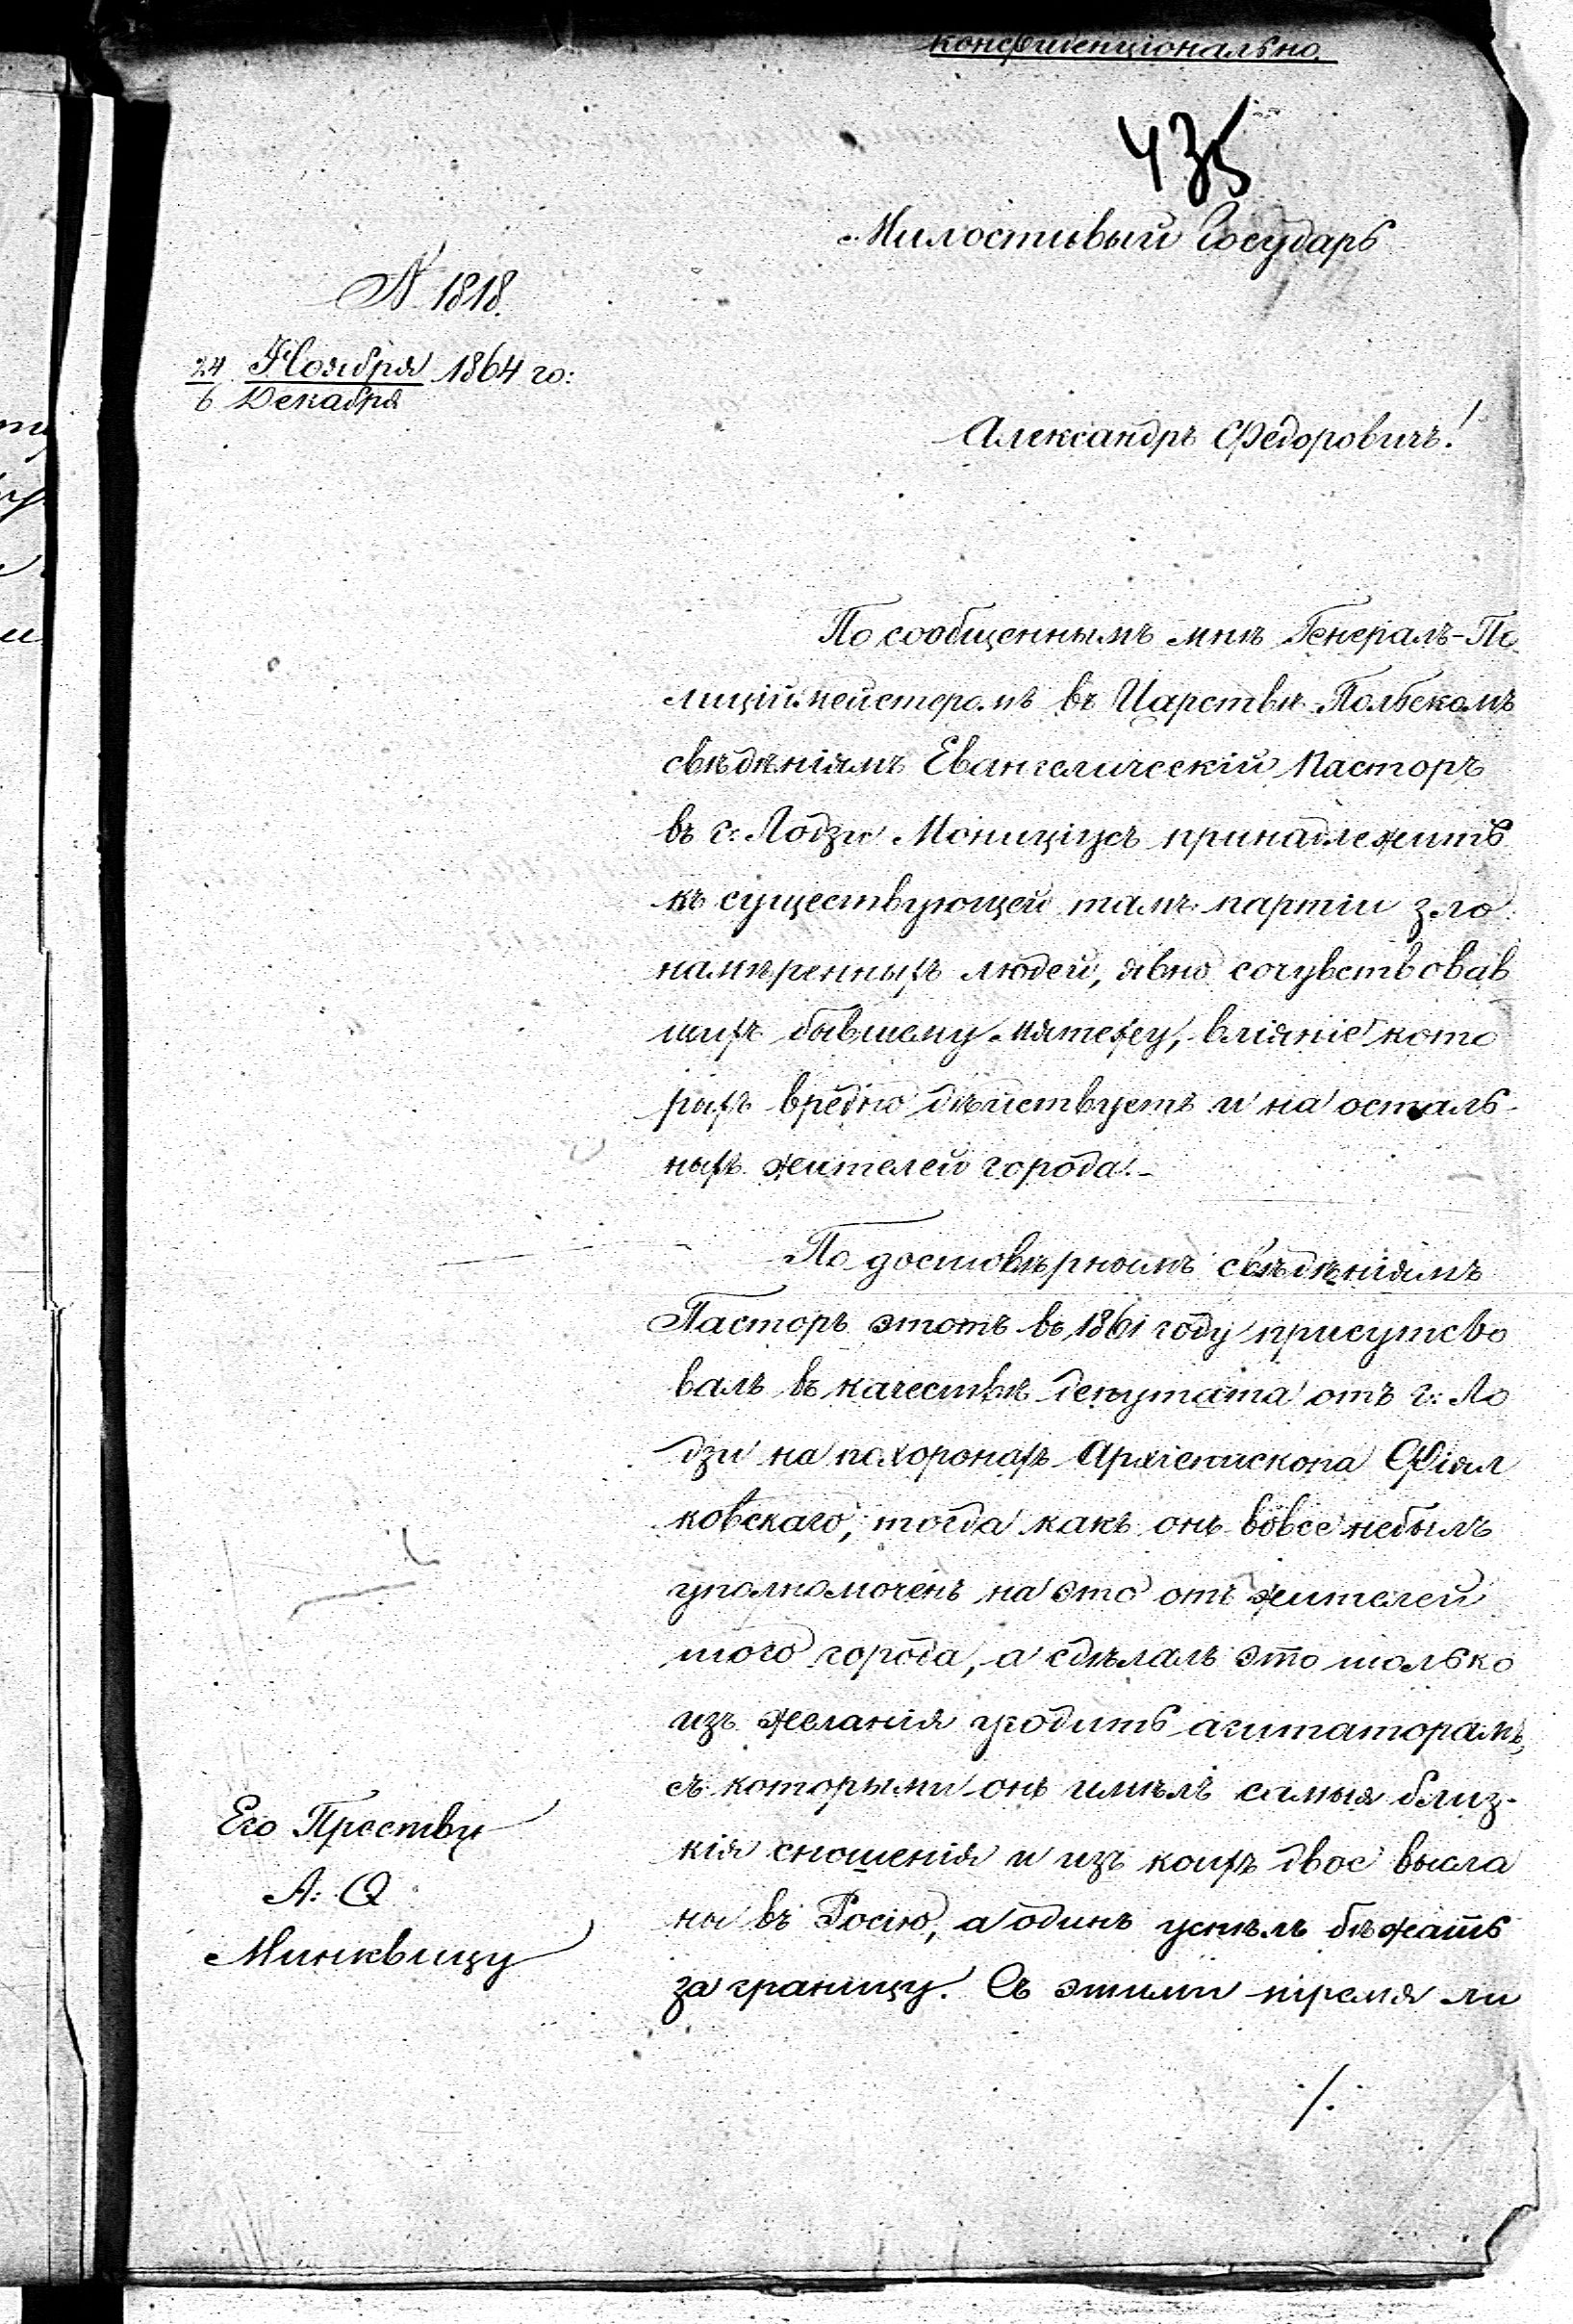 Конфиденціонально.
435
Милостивый Государь
№ 1818.
24 Ноября 1864 го:
6 Декабря
Александръ Федоровичъ!
По сообщеннымъ мнѣ Генералъ-По
лиційمейстеромъ въ Царствѣ Польскомъ
свѣдѣніямъ Евангелическій Пасторъ
въ г: Лодзи Моницiусъ принадлежитъ
къ существующей тамъ партіи зло
намѣренныхъ людей, явно сочувствовав
шихъ бывшему мятежу, вліяніе кото
рыхъ вредно дѣйствуетъ и на осталь-
ныхъ жителей города.-
По достовѣрнымъ свѣдѣніямъ
Пасторъ этотъ въ 1861 году присутство
валъ въ качествѣ депутата отъ г: Ло
дзи на похоронахъ Архіепископа Фіял
ковскаго, тогда какъ онъ вовсе небылъ
уполномоченъ на это отъ жителей
того города, а сдѣлалъ это только
изъ желанія угодить агитаторамъ,
съ которыми онъ имѣлъ самыя близ-
кія сношенія и изъ коихъ двое высла
ны въ Росію, а одинъ успѣлъ бѣжать
за границу. Съ этими тремя ли
Его Прству
А: Ф
Минквицу
./.